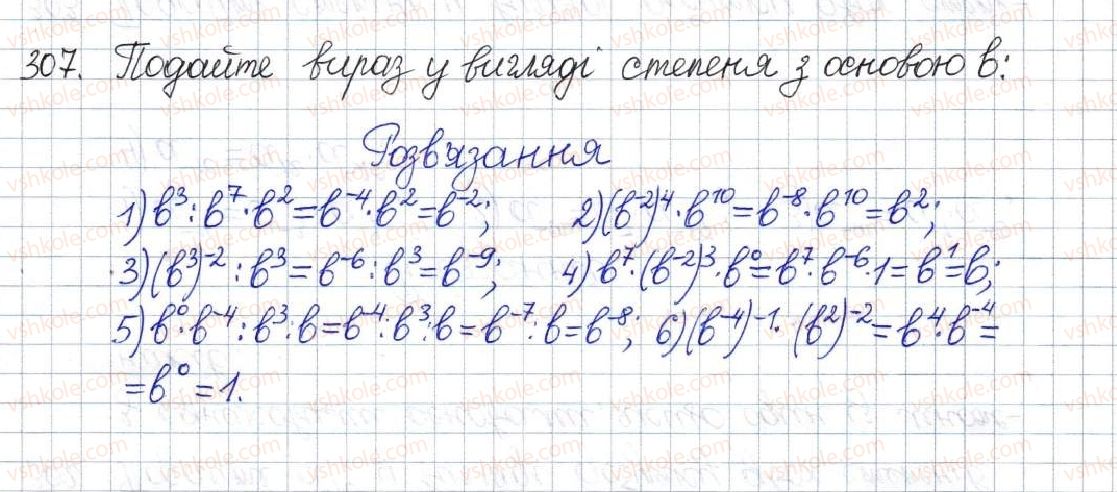 307. Подайте вираз у вигляді степеня з основою b:
Розв'язання
1) b³ : b⁷ · b² = b⁻⁴ · b² = b⁻²; 2) (b⁻²)⁴ · b¹⁰ = b⁻⁸ · b¹⁰ = b²;
3) (b³)⁻² : b³ = b⁻⁶ : b³ = b⁻⁹; 4) b⁷ · (b⁻²)³ · b⁰ = b⁷ · b⁻⁶ · 1 = b¹ = b;
5) b⁰ · b⁻⁴ : b³ : b = b⁻⁴ : b³ : b = b⁻⁷ : b = b⁻⁸; 6) (b⁻⁴)⁻¹ · (b²)⁻² = b⁴ · b⁻⁴ =
= b⁰ = 1.